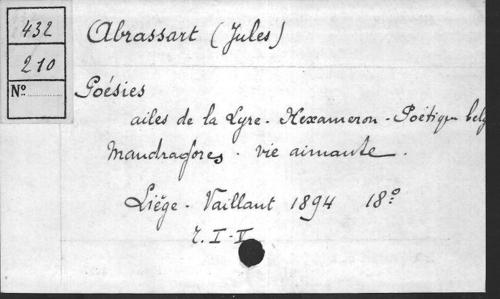 432
210
No
Abrassart (Jules)
Poésies
ailes de la Lyre - Hexameron - Poétique belg
Mandragores - vie aimante.
Liège - Vaillant 1894 18o
r. I-V